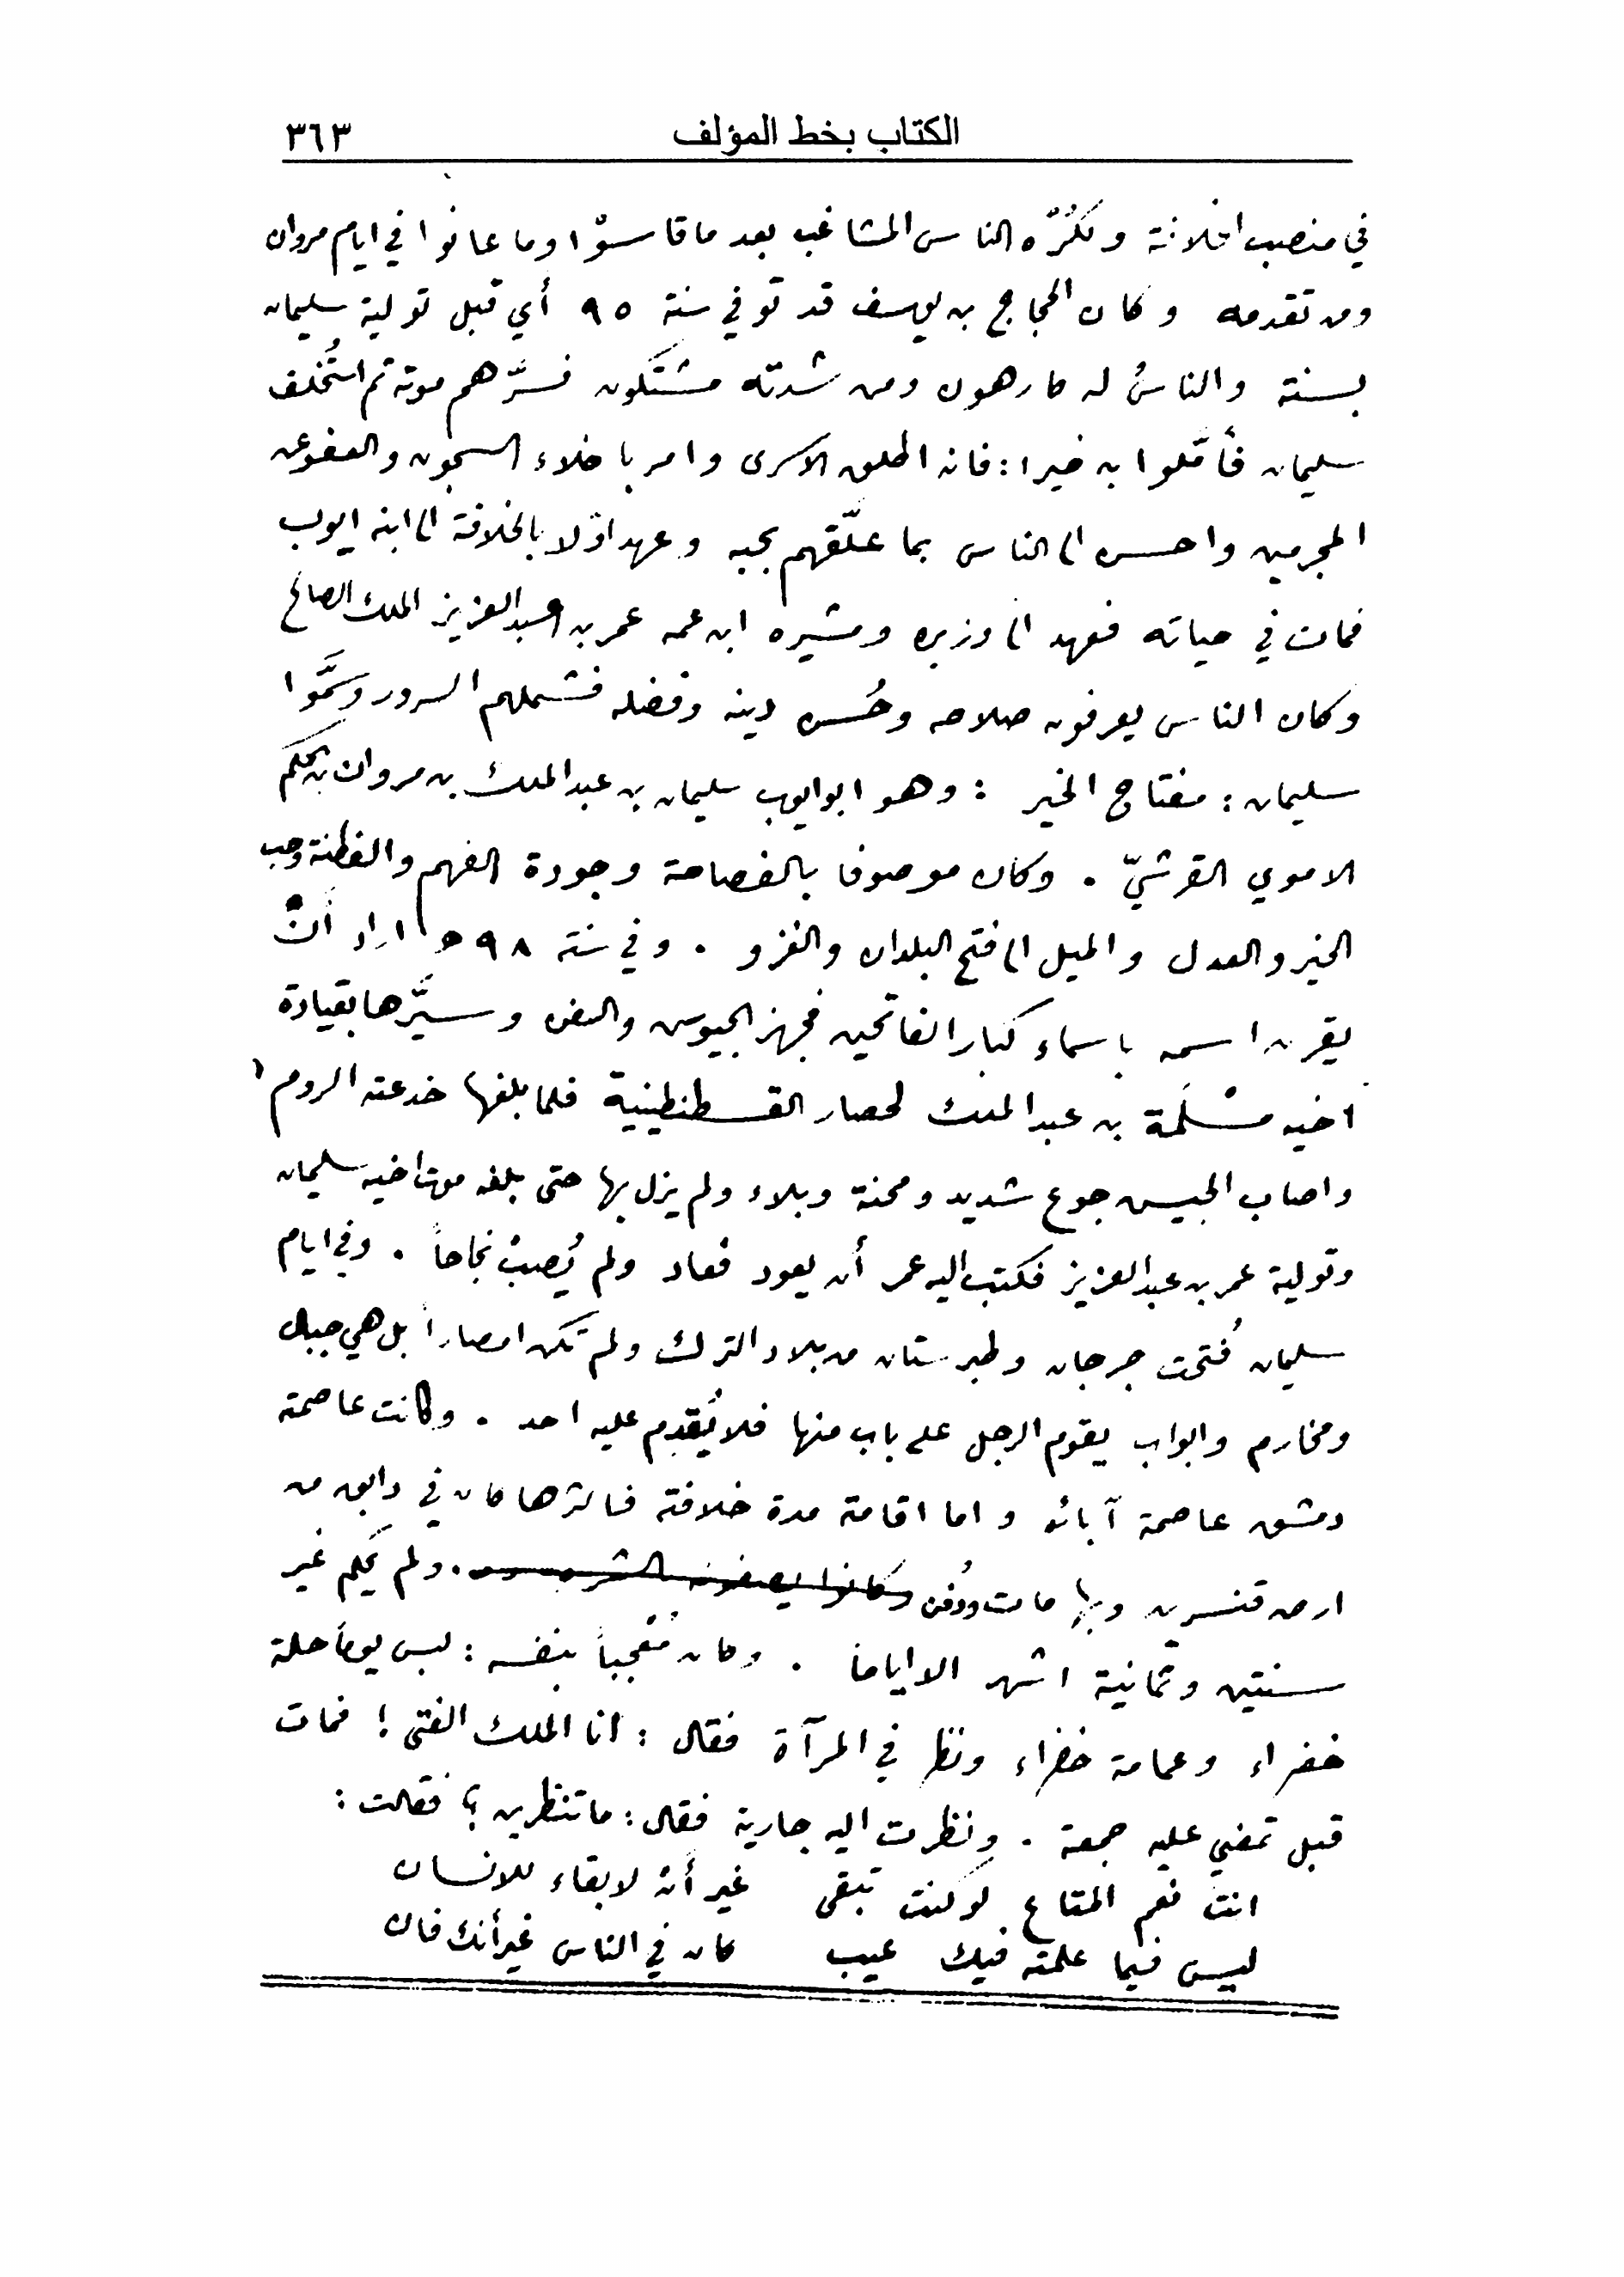 الكتاب بخط المؤلف ٣٦٣
في منصب الخلافة وتكرُّه الناس المشاغب بعد ما قاسوْا وما عانوا في ايام مروان
ومن تقدمه وكان الحجاج بن يوسف قد توفي سنة ٩٥ أي قبل تولية سليمان
بسنة والناسُ له كارهون ومن شدته مشتكون فسرَّهم موته ثم استُخلف
سليمان فأمّلوا به خيرا : فانه اطلق الاسرى وامر باخلاء السجون والعفو عن
المجرمين واحسن الى الناس بما علّقهم بحبه وعهد اوّلا بالخلافة الى ابنه ايوب
فمات في حياته فعهد الى وزيره ومشيره ابن عمه عمر بن عبد العزيز الملك الصالح
وكان الناس يعرفون صلاحه وحُسن دينه وفضله فشملهم السرور وسَمَّوا
سليمان : مفتاح الخير : وهو ابو ايوب سليمان بن عبد الملك بن مروان بن الحكم
الاموي القرشيّ . وكان موصوفا بالفصاحة وجودة الفهم والفطنة وحب
الخير والعدل والميل الى فتح البلدان والغزو . وفي سنة ٩٨ هـ اراد أنْ
يقرن اسمه باسماء كبار الفاتحين فجهز الجيوس والسفن وسيَّرها بقيادة
اخيه مسْلَمة بن عبد الملك لحصار القسطنطينية فلما بلغها خدعته الروم
واصاب الجيس جوع شديد ومحنة وبلاء ولم يزل بها حتى بلغه موت اخيه سليمان
وتولية عمر بن عبد العزيز فكتب اليه عمر أن يعود فعاد ولم يُصبْ نجاحاً . وفي ايام
سليمان فُتحت جرجان وطبرستان من بلاد الترك ولم تكن امصاراً بل هي جبال
ومخارم وابواب يقوم الرجل على باب منها فلا يُقدِم عليه احد . وكانت عاصمة
دمشق عاصمة آبائه واما اقامة مدة خلافته فاكثرها كان في دابق من
ارض قنسرين وبها مات ودُفن . ولم يحكم غير
سنتين وثمانية اشهر الا اياما . وكان مُعجباً بنفسه : لبس يوماً حلة
خضراء وعمامة خضراء ونظر في المرآة فقال : انا الملك الفتى ! فمات
قبل تمضي عليه جمعة . ونظرت اليه جارية فقال : ما تنظرين ؟ فقالت :
انت نعم المتاع لو كنت تبقى غير أنْ لا بقاء للانسان
ليس فيما علمته فيك عيب كان في الناس غير أنك فان